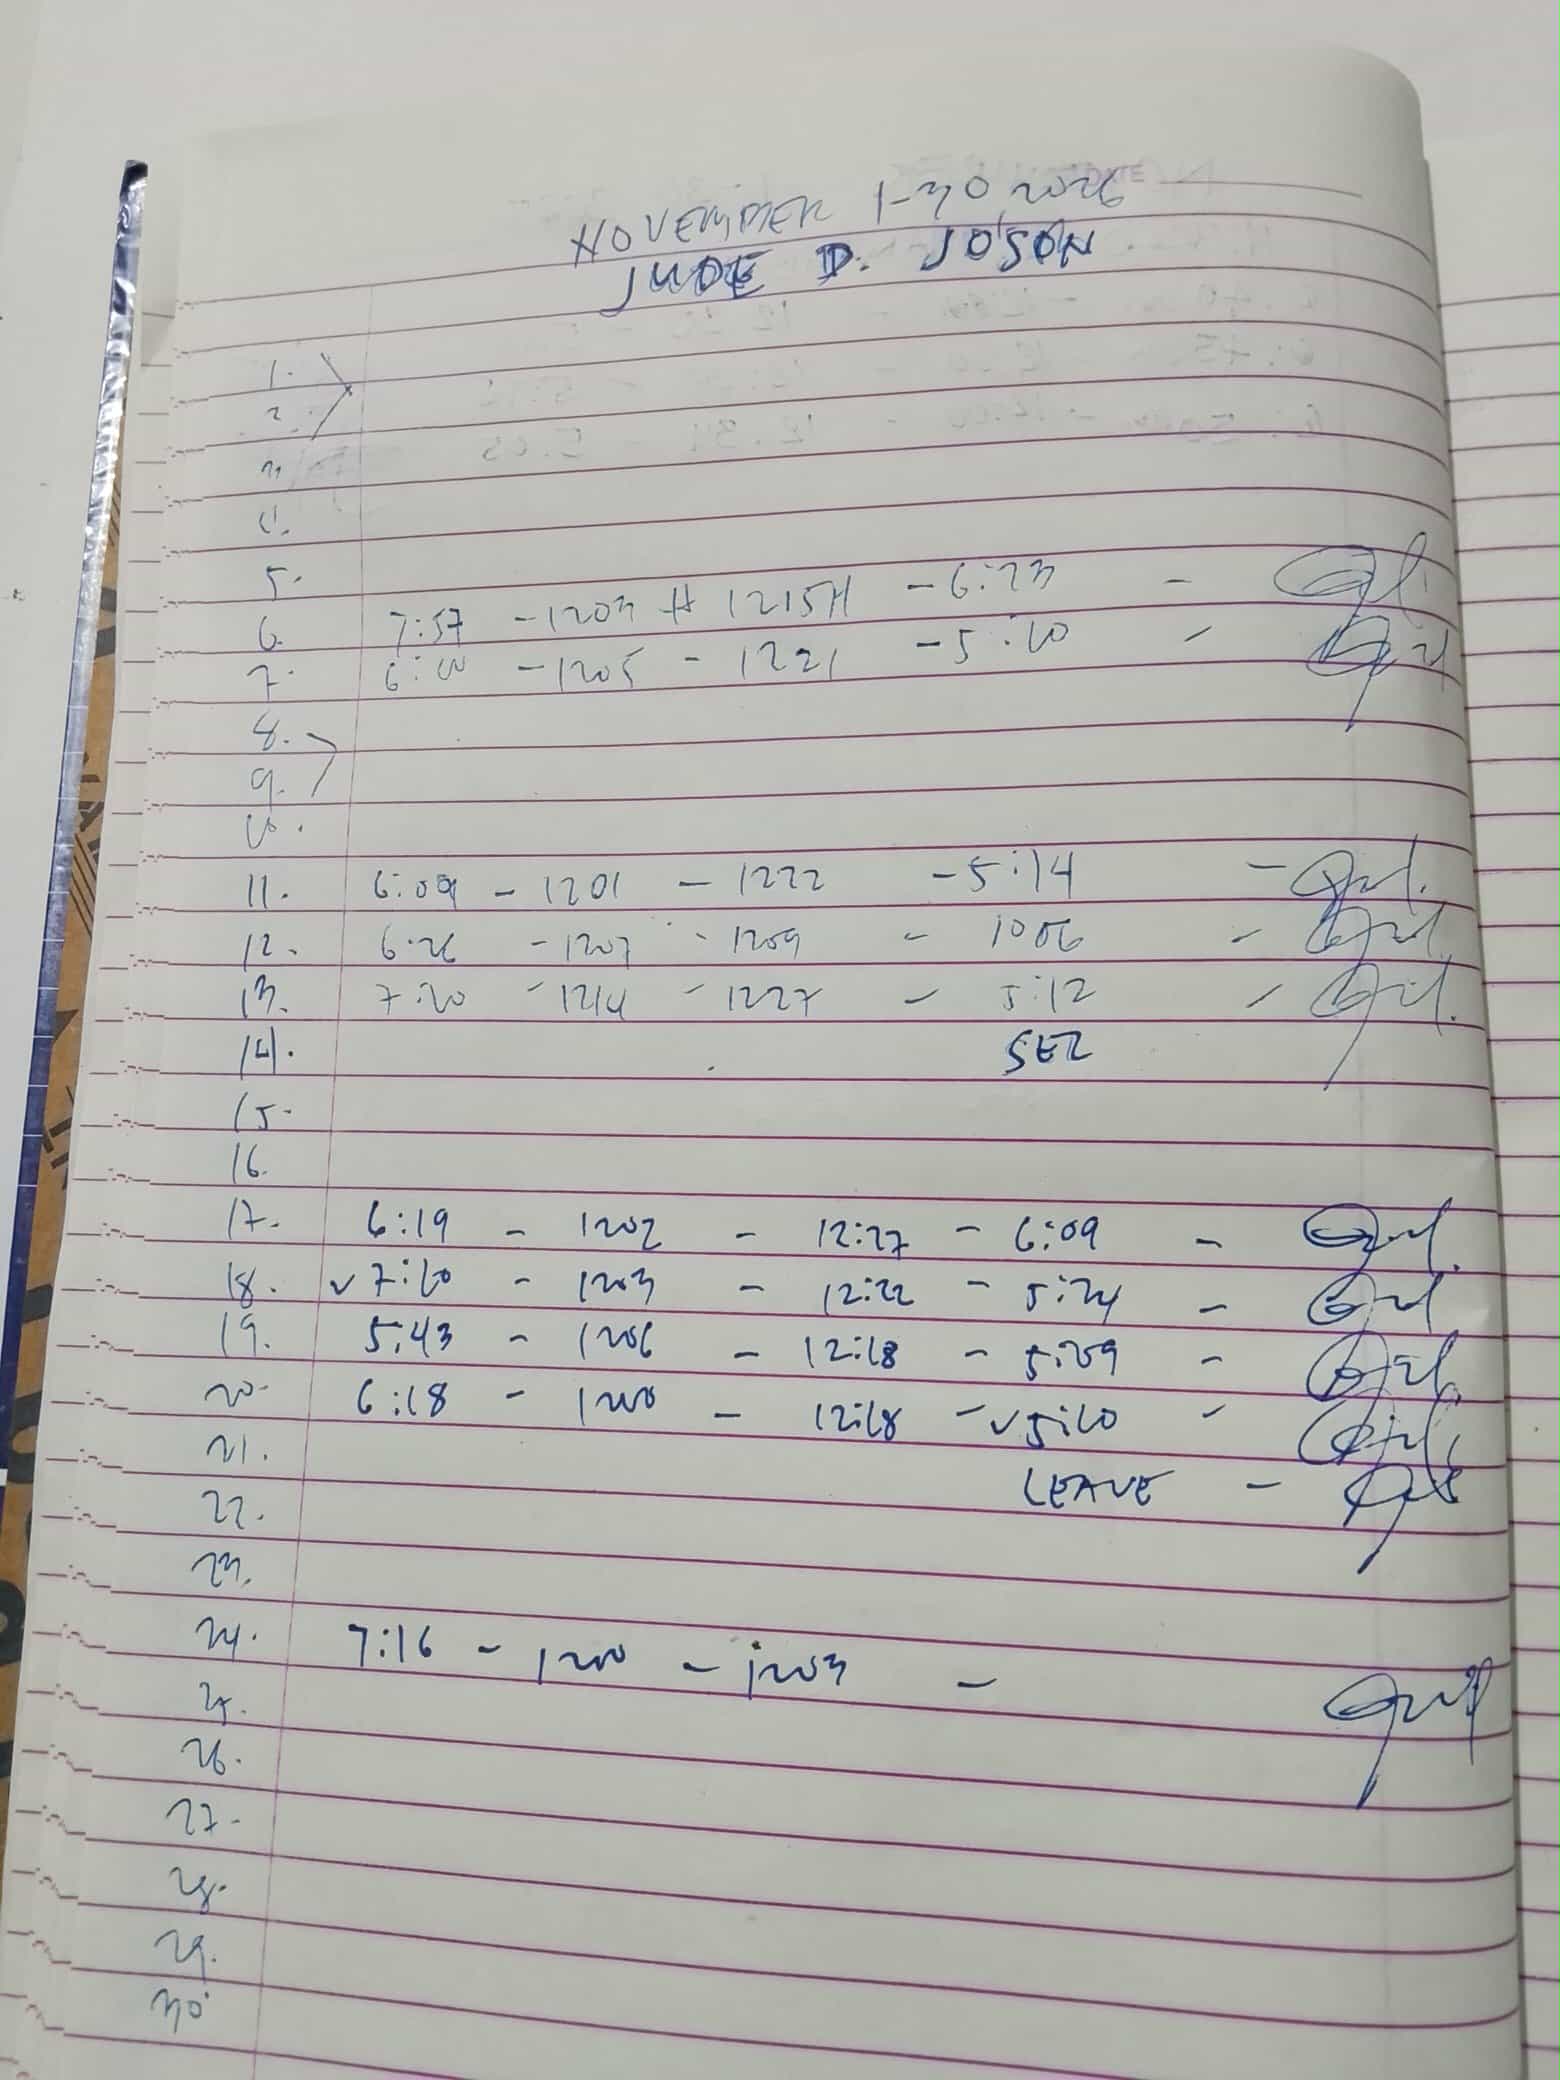 NOVEMBER 1-30, 2026
JUDE D. JOSON
1.
2.
3.
4.
5.
6. 7:57 - 1203 H 1215H - 6:23 -
7. 6:10 - 1205 - 1221 - 5:10 -
8.
9.
10.
11. 6:09 - 1201 - 1222 - 5:14 -
12. 6:26 - 1207 - 1209 - 1006 -
13. 7:20 - 1214 - 1227 - 5:12 -
14. SEZ
15.
16.
17. 6:19 - 1202 - 12:27 - 6:09 -
18. 7:10 - 1203 - 12:22 - 5:24 -
19. 5:43 - 1206 - 12:18 - 5:09 -
20. 6:18 - 1200 - 12:18 - 5:10 -
21. LEAVE -
22.
23.
24. 7:16 - 1200 - 1203 -
25.
26.
27.
28.
29.
30